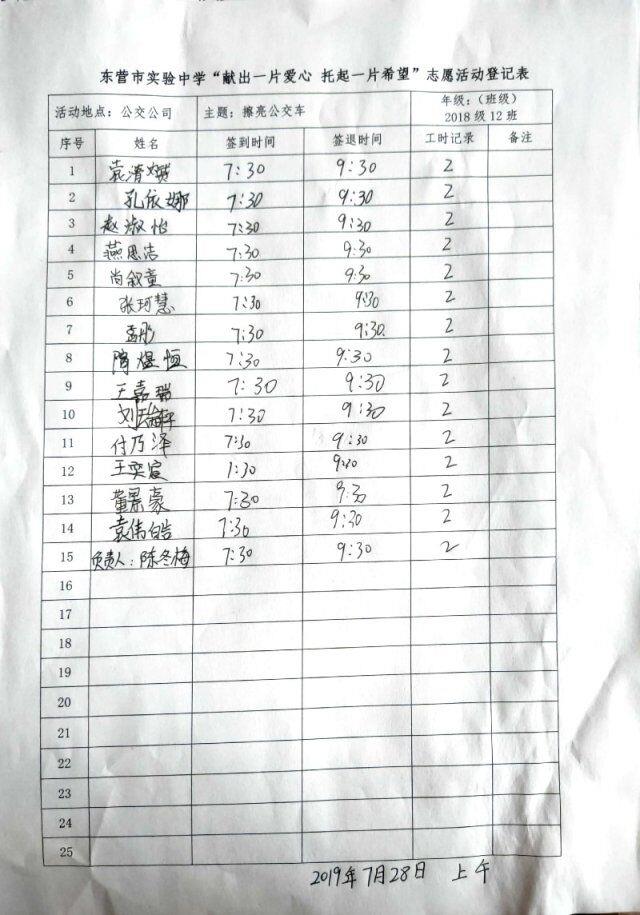 东营市实验中学“献出一片爱心 托起一片希望”志愿活动登记表
活动地点：公交公司 主题：擦亮公交车 年级：（班级） 2018 级 12 班
序号 姓名 签到时间 签退时间 工时记录 备注
1 袁清 7:30 9:30 2
2 孔依娜 7:30 9:30 2
3 赵淑怡 7:30 9:30 2
4 燕思洁 7:30 9:30 2
5 尚叙童 7:30 9:30 2
6 张珂慧 7:30 9:30 2
7 孟彤 7:30 9:30 2
8 隋煜恒 7:30 9:30 2
9 王嘉瑞 7:30 9:30 2
10 刘 7:30 9:30 2
11 付乃泽 7:30 9:30 2
12 王奕宸 7:30 9:30 2
13 董景豪 7:30 9:30 2
14 袁伟皓 7:30 9:30 2
15 负责人：陈冬梅 7:30 9:30 2
16
17
18
19
20
21
22
23
24
25
2019年7月28日 上午